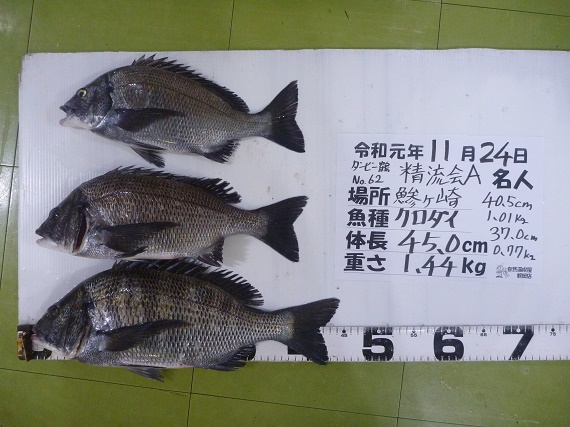 令和元年11月24日
ダービー戦
No.62 精流会A 名人
場所 鯵ヶ崎 40.5cm
魚種 クロダイ 1.01kg
体長 45.0cm 37.0cm
重さ 1.44kg 0.77kg
5 6 7